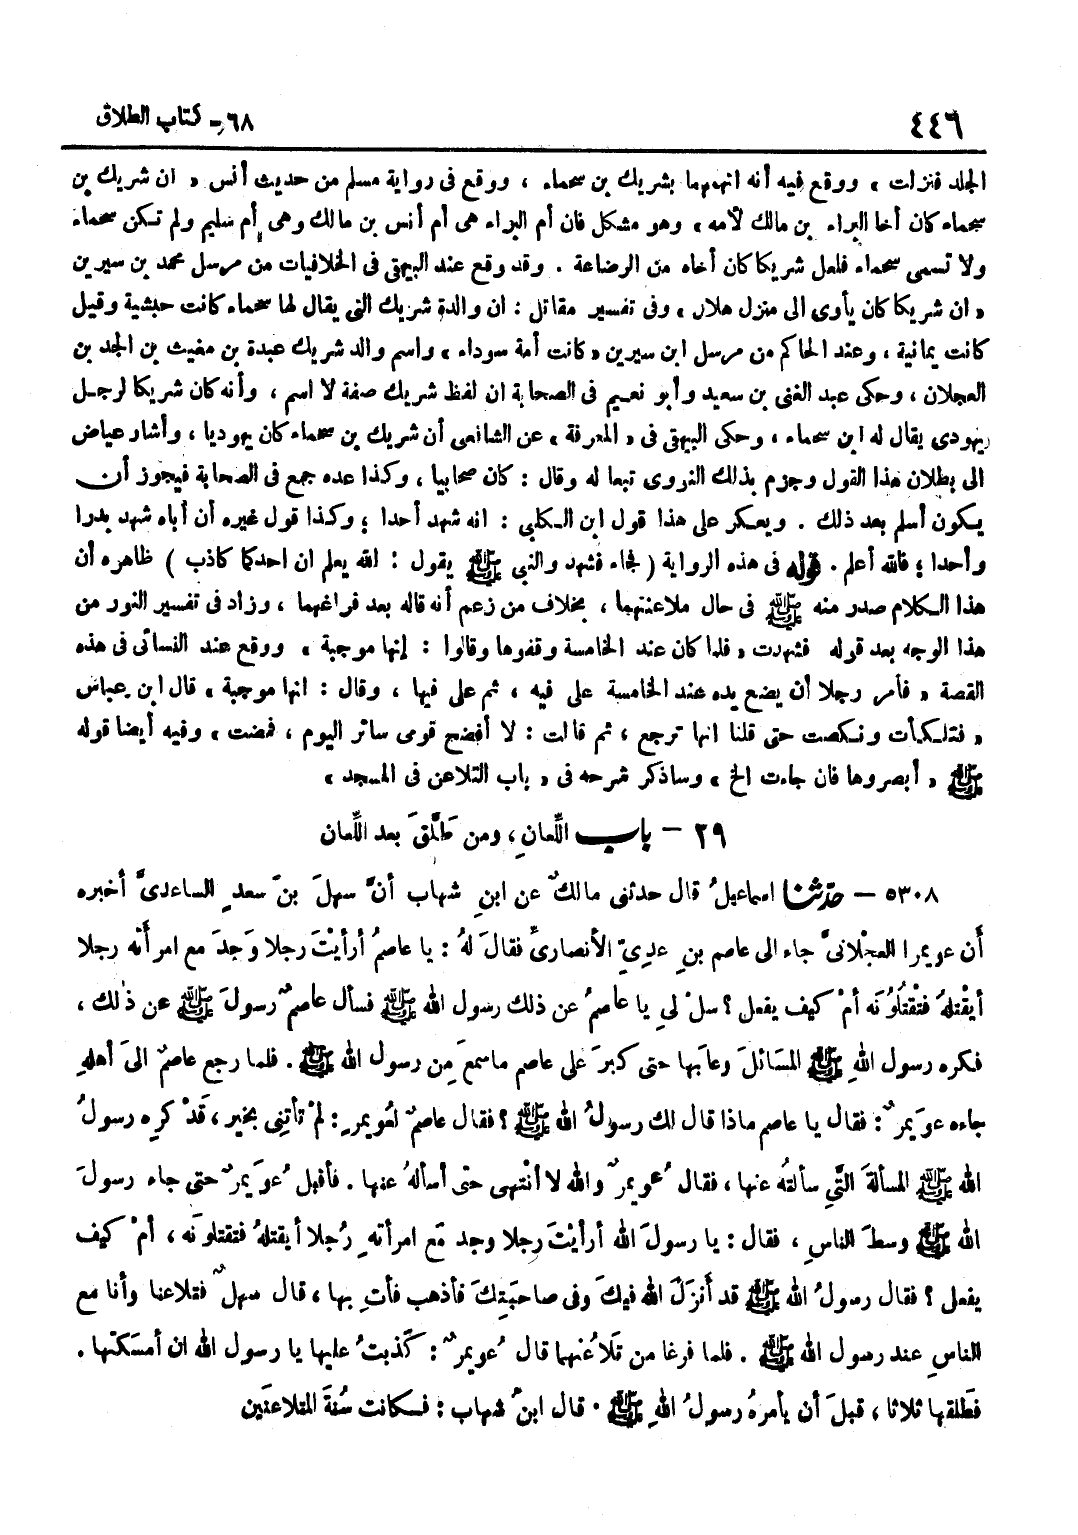 ٤٤٦
٦٨ - كتاب الطلاق
الجلد فنزلت » ووقع فيه أنه اتهمها بشريك بن سحماء ، ووقع فى رواية مسلم من حديث أنس « ان شريك بن
سحماء كان أخا البراء بن مالك لأمه » وهو مشكل فان أم البراء هى أم أنس بن مالك وهى أم سليم ولم تكن سحماء
ولا تسمى سحماء فلعل شريكا كان أخاه من الرضاعة . وقد وقع عند البيهقى فى الخلافيات من مرسل محمد بن سيرين
« ان شريكا كان يأوى الى منزل هلال » وفى تفسير مقاتل : ان والدة شريك التى يقال لها سحماء كانت حبشية وقيل
كانت يمانية ، وعند الحاكم من مرسل ابن سيرين « كانت أمة سوداء » واسم والد شريك عبدة بن مغيث بن الجد بن
العجلان ، وحكى عبد الغنى بن سعيد وأبو نعيم فى الصحابة ان لفظ شريك صفة لا اسم ، وأنه كان شريكا لرجل
يهودى يقال له ابن سحماء ، وحكى البيهقى فى « المعرفة » عن الشافعى أن شريك بن سحماء كان يهوديا ، وأشار عياض
الى بطلان هذا القول وجزم بذلك النووى تبعا له وقال : كان صحابيا ، وكذا عده جمع فى الصحابة فيجوز أن
يكون أسلم بعد ذلك . ويعكر على هذا قول ابن الكلبي : انه شهد أحدا ؛ وكذا قول غيره أن أباه شهد بدرا
وأحدا ؛ فالله أعلم . قوله فى هذه الرواية ( فجاء فشهد والنبي ﷺ يقول : الله يعلم ان احدكما كاذب ) ظاهره أن
هذا الكلام صدر منه ﷺ فى حال ملاعنتهما ، بخلاف من زعم أنه قاله بعد فراغهما ، وزاد فى تفسير النور من
هذا الوجه بعد قوله فشهدت « فلما كان عند الخامسة وقفوها وقالوا : إنها موجبة » ووقع عند النسائى فى هذه
القصة « فأمر رجلا أن يضع يده عند الخامسة على فيه ، ثم على فيها ، وقال : انها موجبة » قال ابن عباس
« فتلكأت ونكصت حتى قلنا انها ترجع ، ثم قالت : لا أفضح قومى سائر اليوم ، فمضت » وفيه أيضا قوله
ﷺ « أبصروها فان جاءت الخ » وساذكر شرحه فى « باب التلاعن فى المسجد »
٢٩ - باب اللِّعانِ، ومن طَلَّقَ بعد اللِّعان
٥٣٠٨ - حدّثنا اسماعيلُ قال حدثنى مالكٌ عن ابنِ شهاب أنَّ سهلَ بنَ سعدٍ الساعدىَّ أخبره
أَن عويمرا العجْلانىَّ جاء الى عاصم بنِ عدِىٍّ الأنصارىِّ فقالَ لهُ : يا عاصمُ أرأيْتَ رجلا وَجدَ مع امرأته رجلا
أيقْتلهُ فتقْتُلُونَه أمْ كيف يفعل ؟ سلْ لىِ يا عاصمُ عن ذلك رسول الله ﷺ فسأل عاصمٌ رسولَ ﷺ عن ذٰلك ،
فكره رسول اللهِ ﷺ المسَائلَ وعابها حتى كبرَ على عاصم ماسمعَ مِن رسول الله ﷺ . فلما رجع عاصمٌ الىَ أهلهِ
جاءه عويمرٌ : فقال يا عاصم ماذا قال لك رسولُ الله ﷺ ؟ فقال عاصمٌ لعُويمرٍ : لمْ تأتِنى بخير ، قَدْ كرِه رسولُ
الله ﷺ المسألةَ التَّىِ سألتهُ عنها ، فقال عُويمرٌ والله لا أنْتهى حتّى أسألهُ عنها . فأقبل عُويمرٌ حتى جاء رسولَ
الله ﷺ وسطَ الناسِ ، فقال : يا رسولَ الله أرأيْتَ رجلا وجد مَع امرأتهِ رجُلا أيقتلهُ فتقتلونَه ، أمْ كيف
يفعل ؟ فقال رسولُ الله ﷺ قد أَنزَلَ اللهُ فيكَ وفى صاحبَتِكَ فأذهب فأتِ بها ، قال سهلٌ فتلاعنا وأنا مع
الناسِ عند رسول الله ﷺ . فلما فرغا من تَلاعُنهما قال عُويمرٌ : كَذبتُ عليها يا رسول الله ان أمسَكتها .
فَطلقها ثلاثا ، قبلَ أن يأمرهُ رسولُ اللهِ ﷺ . قال ابنُ شهاب : فكانت سُنةَ المتلاعنَين